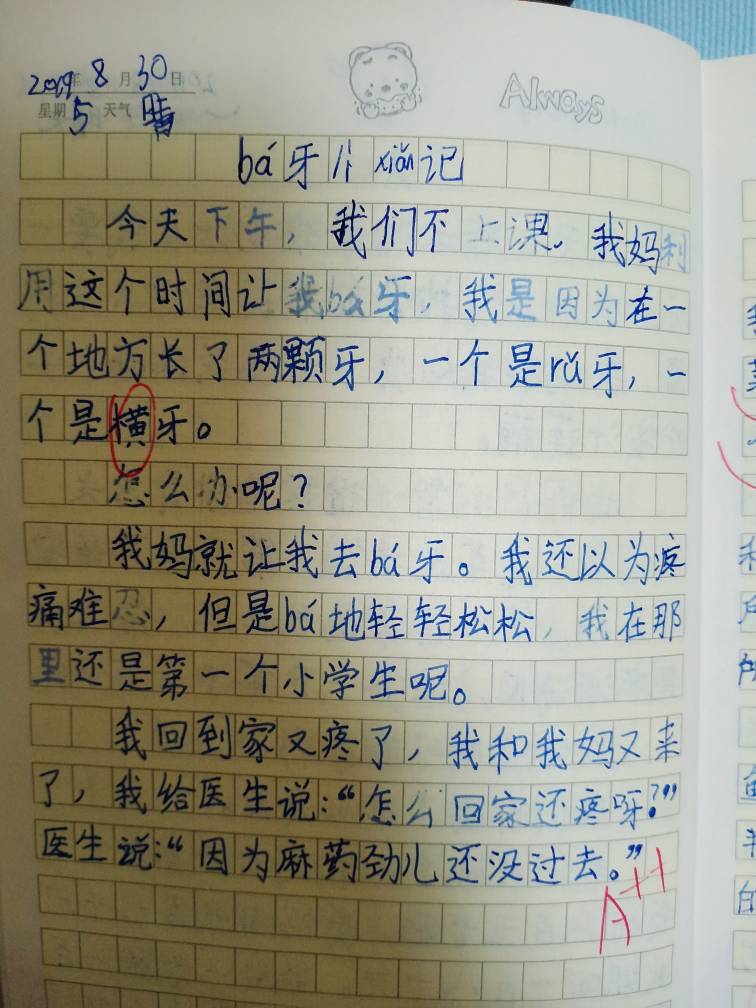 2019年8月30日
星期5 天气 晴
Always
bá牙儿xiǎn记
今天下午，我们不上课。我妈利
用这个时间让我bá牙，我是因为在一
个地方长了两颗牙，一个是rǔ牙，一
个是横牙。
怎么办呢？
我妈就让我去bá牙。我还以为疼
痛难忍，但是bá地轻轻松松，我在那
里还是第一个小学生呢。
我回到家又疼了，我和我妈又来
了，我给医生说：“怎么回家还疼呀？”
医生说：“因为麻药劲儿还没过去。”
A++